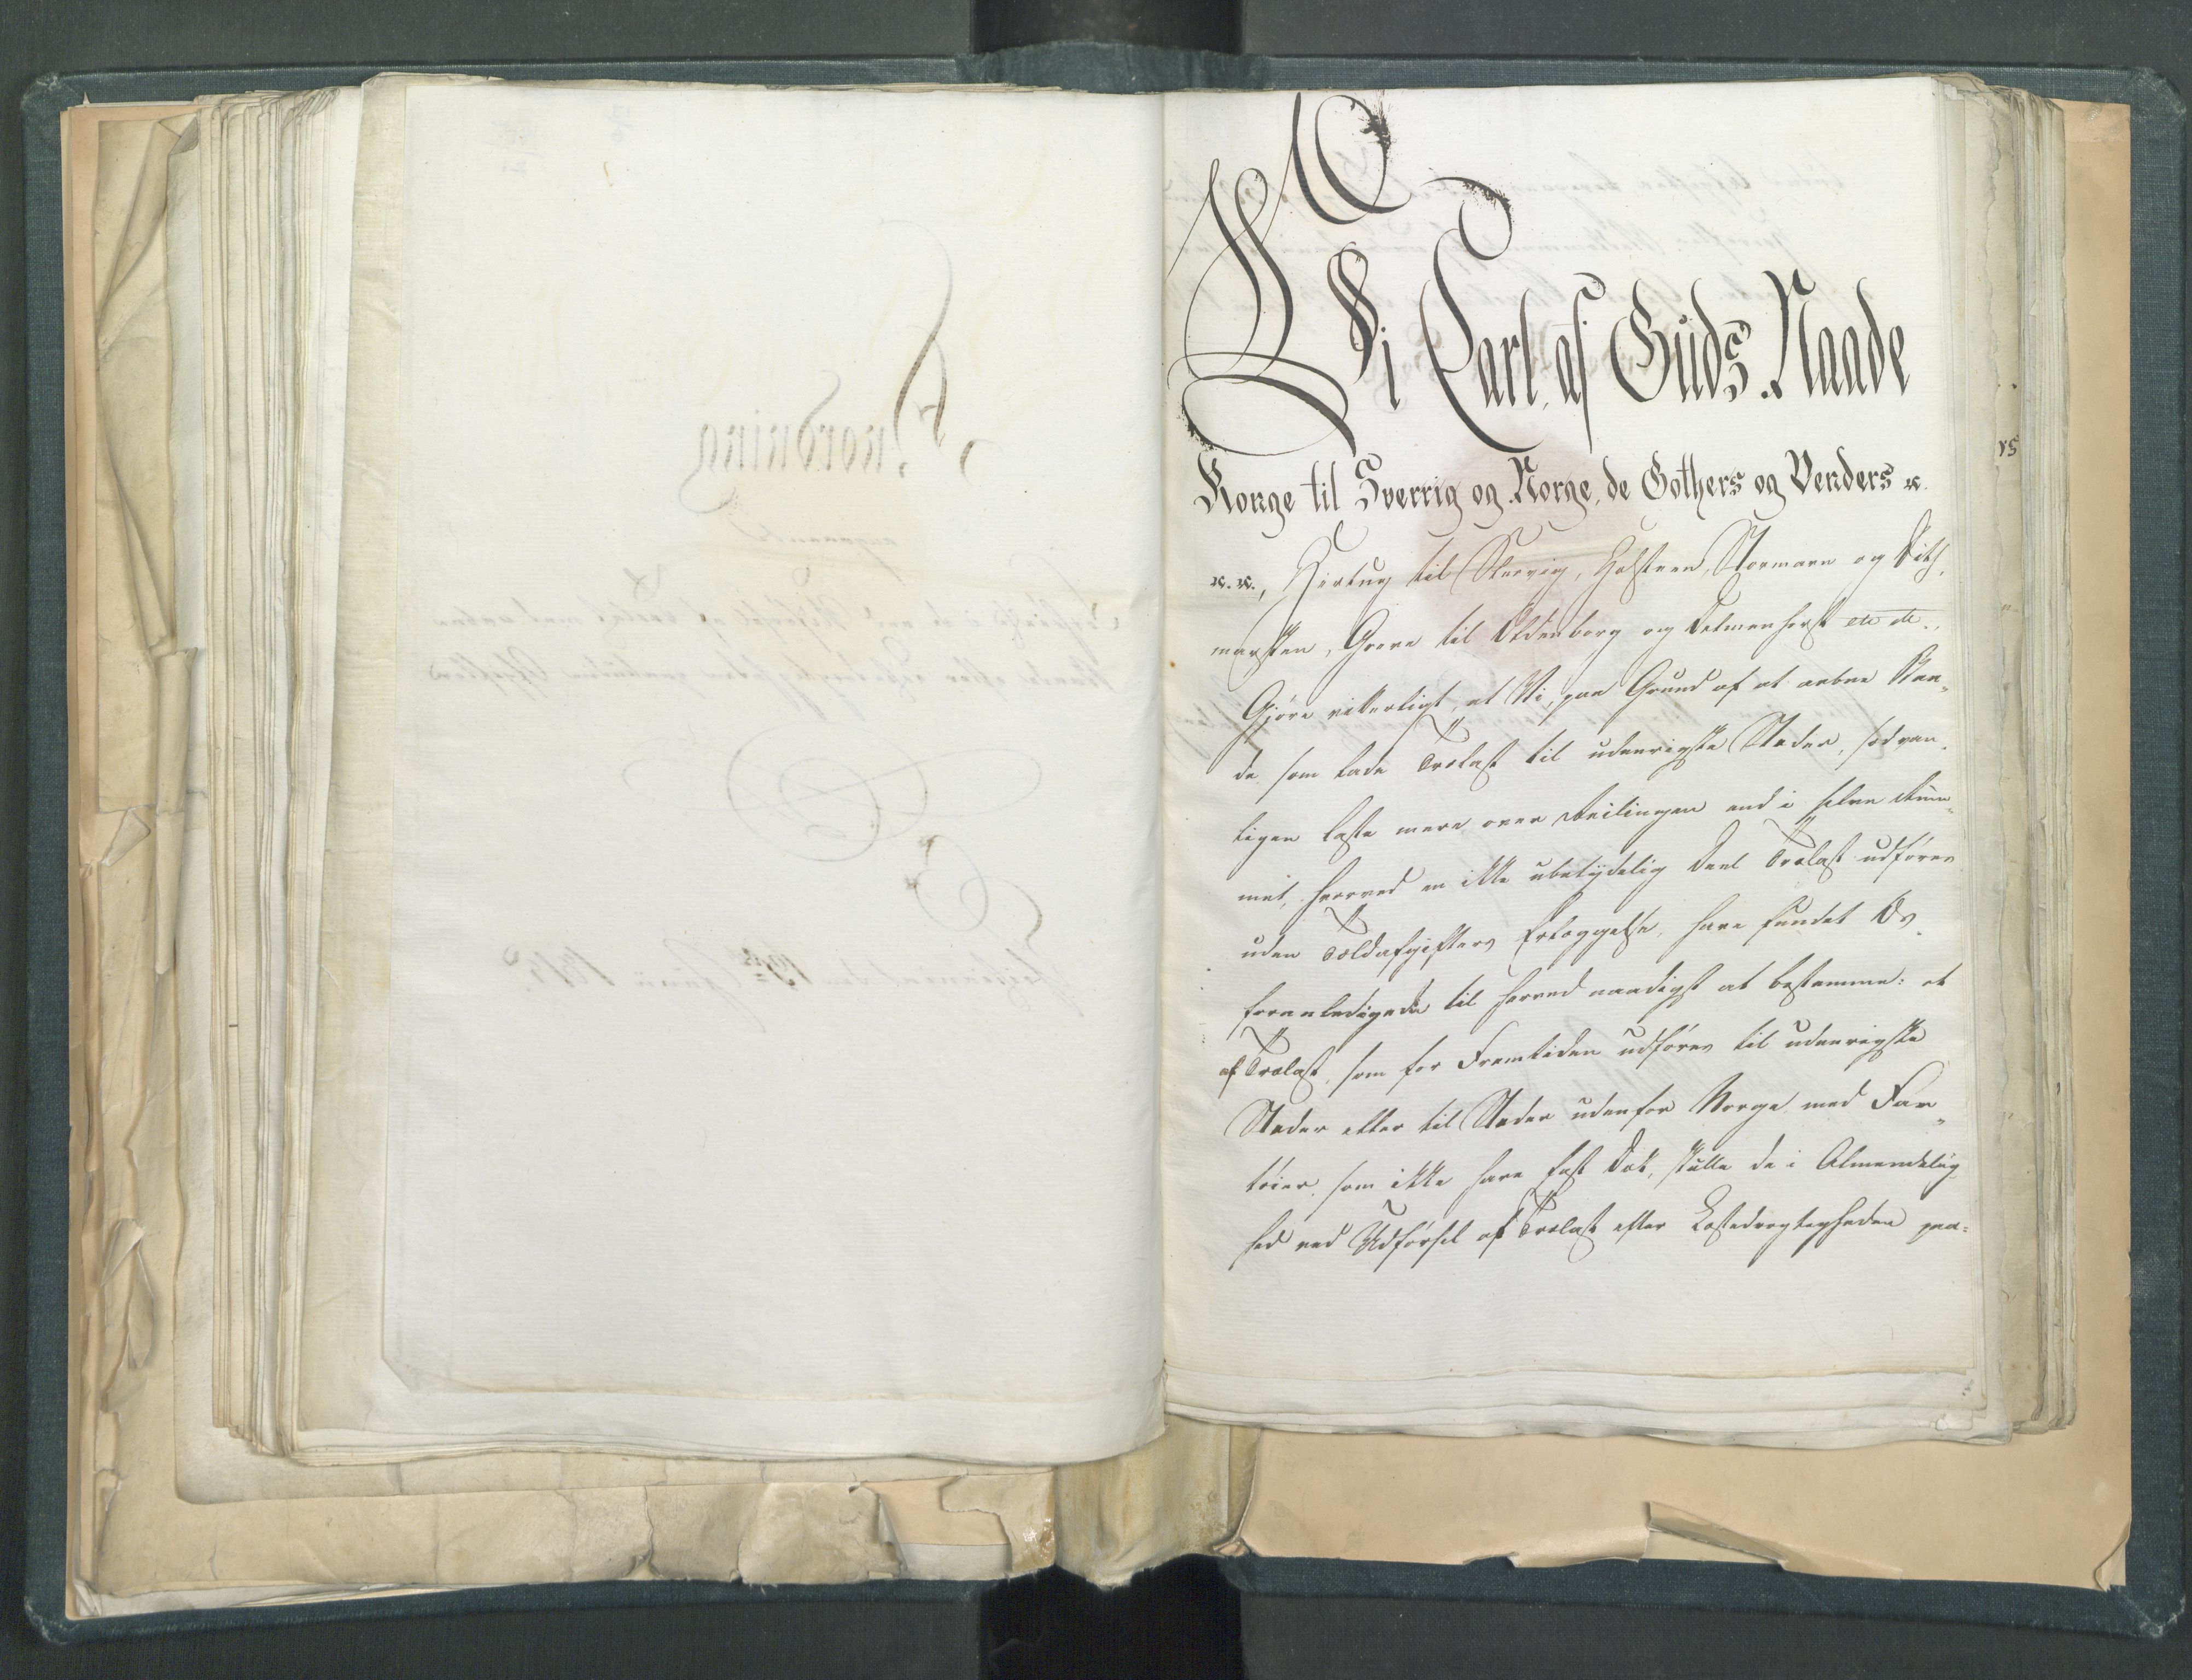 Vi Carl, af Guds Naade
Konge til Sverrig og Norge, de Gothers og Venders &c.
&c. &c., Hertug til Slesvig, Holsteen, Stormarn og Dith,
marsken, Greve til Oldenborg og Delmenhorst etc etc.,
Gjøre vitterligt, at Vi, paa Grund af at aabne Baa-
de som lade Trælast til udenrigske Steder, sædvan-
ligen laste mere over Beilingen end i selve Rum-
met, hvorved en ikke ubetydelig Deel Trælast udføres
uden Toldafgifters Erlæggelse, have fundet Os
foranledigede til herved naadigst at bestemme: at
af Trælast, som for Fremtiden udføres til udenrigske
Steder eller til Steder udenfor Norge med Far-
tøier, som ikke have fast Dæk, skulle de i Almindelig-
hed ved Udførsel af Trælast efter Lastedrægtigheden paa-